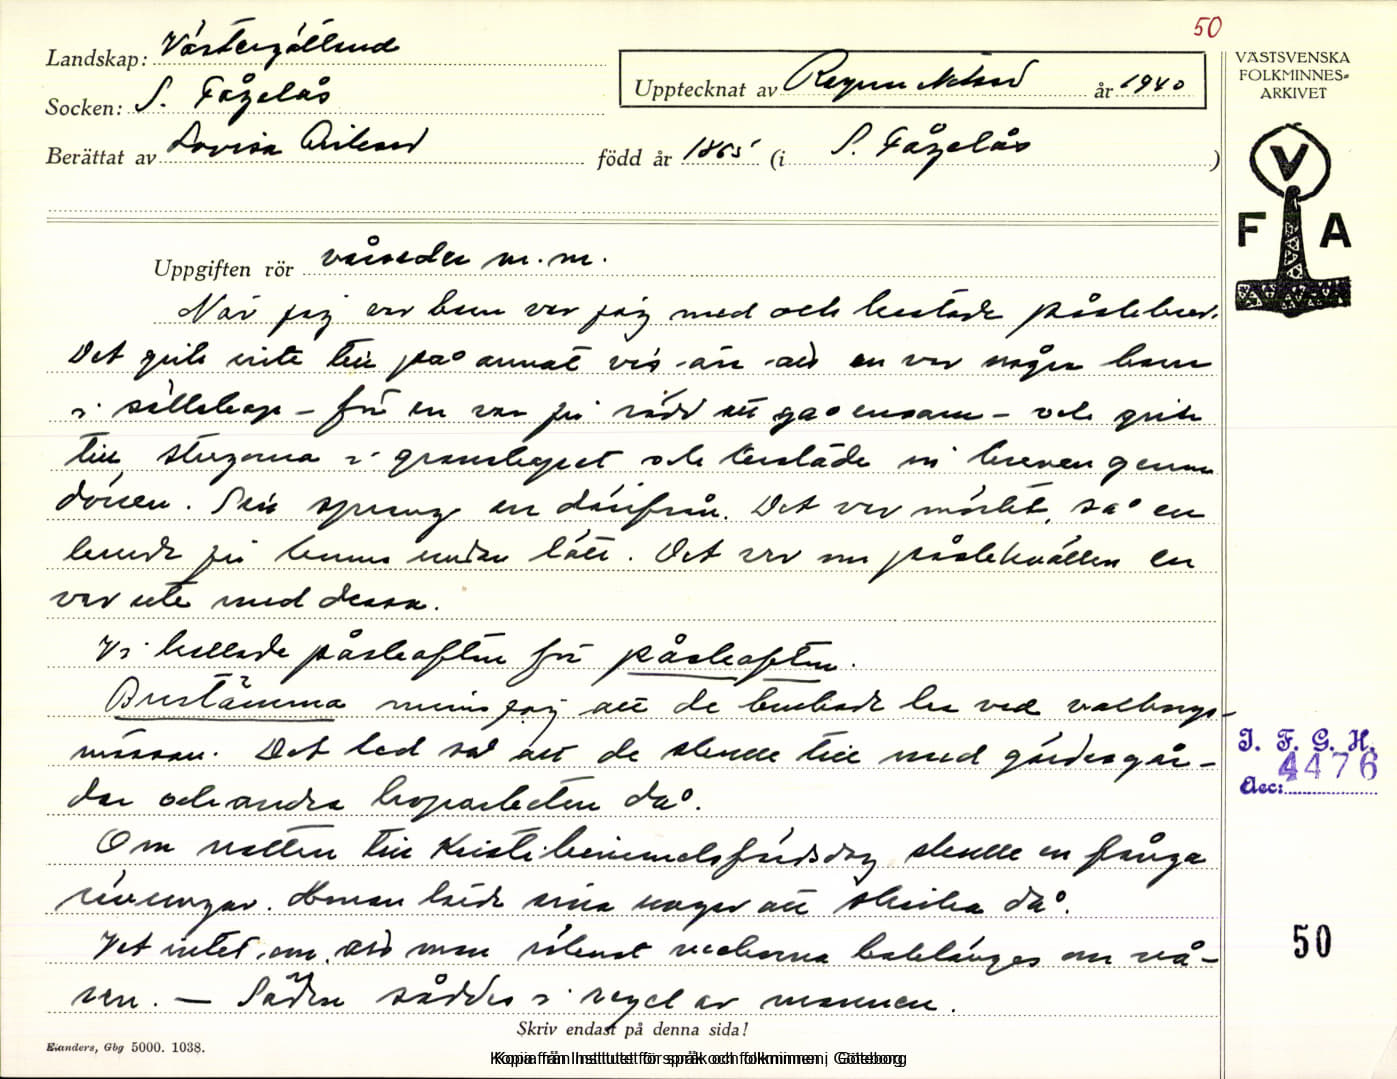 50
Landskap: Västergötland
Socken: S. Fågelås
Upptecknat av Ragnar Nilsson år 1940
Berättat av Lovisa född år 1865 (i S. Fågelås)
VÄSTSVENSKA
FOLKMINNES-
ARKIVET
V
F A
Uppgiften rör vårseder m.m.
När jag var barn var jag med och kastade påskbrev.
Det gick inte till på annat vis än att en var några barn
i sällskap – för en var ju rädd att gå ensam – och gick
till stugorna i granskapet och kastade in breven genom
dörren. Sen sprang en därifrån. Det var mörkt, så en
kunde ju komma undan lätt. Det var om påskkvällen en
var ute med dessa.
Vi kallade påskafton för påskafton.
Brustämma minns jag att de brukade ha vid valborgs-
mässan. Det led så att de skulle till med gärdesgår-
dar och andra hoparbeten då.
Om natten till Kristi himmelsfärdsdag skulle en fånga
rävungar. Honan lärde sina ungar att skrika då.
Vet intet, om att man räknat veckorna baklänges om vå-
ren. – Säden såddes i regel av mannen.
I. F. G. H.
Acc: 4476
50
Skriv endast på denna sida!
Elanders, Gbg 5000. 1038.
Kopia från Institutet för språk och folkminnen, Göteborg